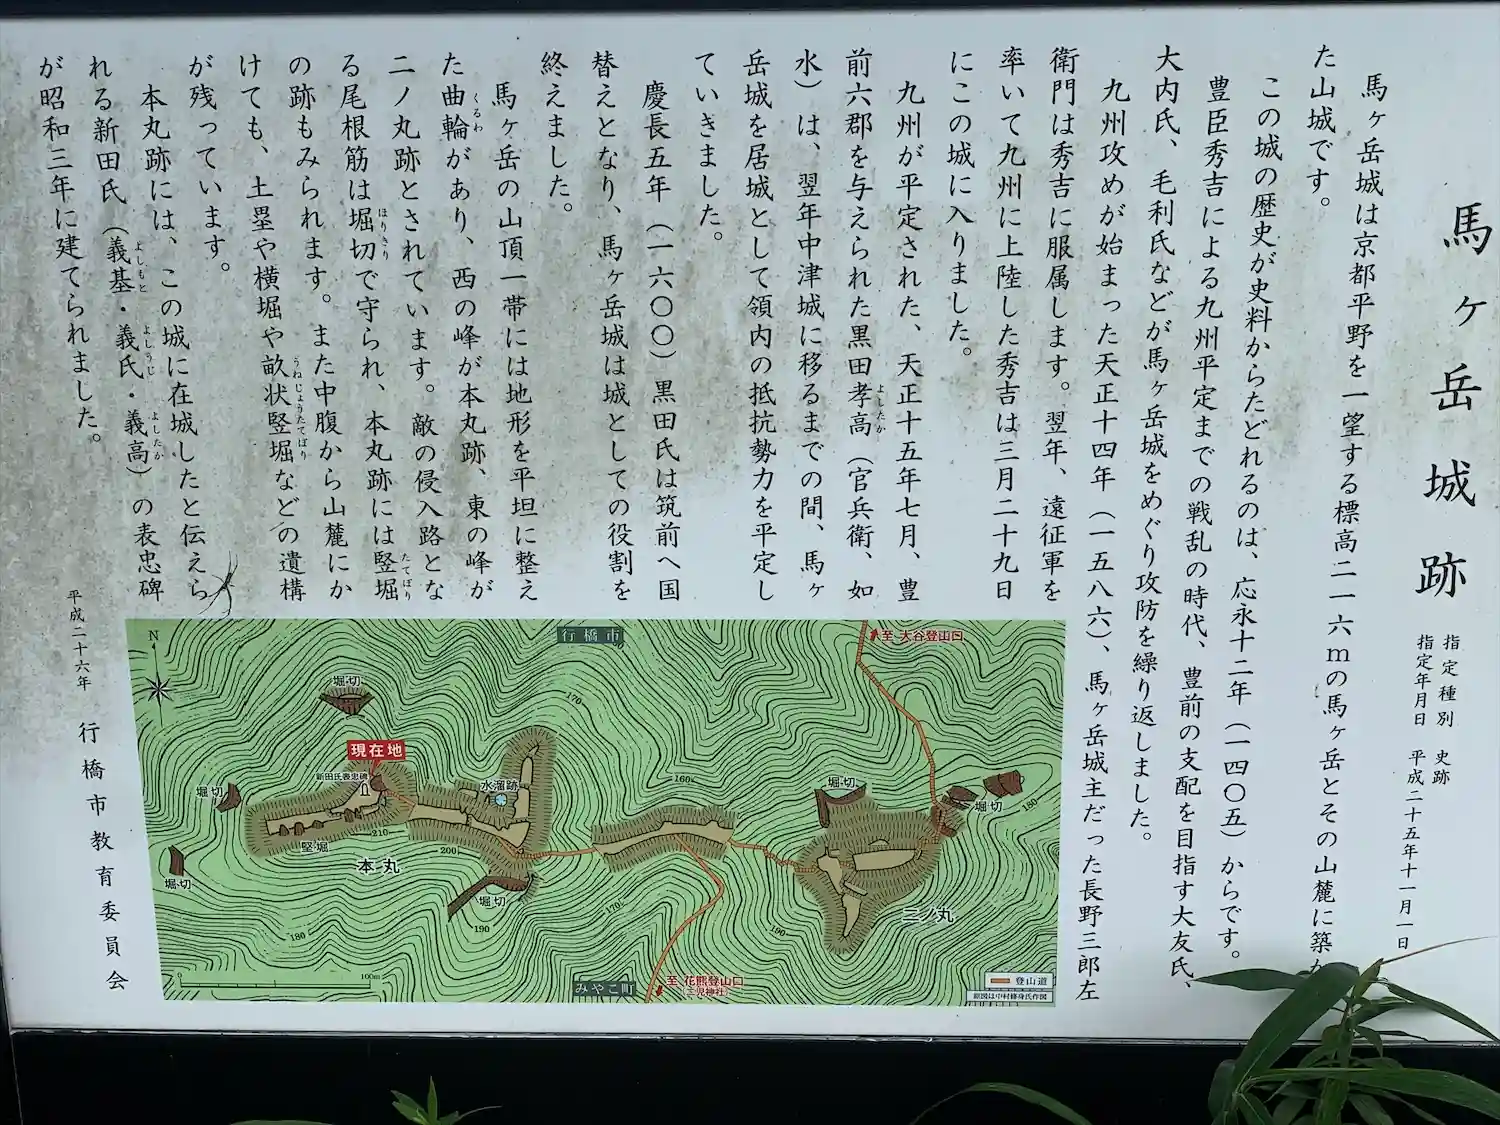 馬ヶ岳城跡
指定種別 史跡
指定年月日 平成二十五年十一月一日
馬ヶ岳城は京都平野を一望する標高二一六mの馬ヶ岳とその山麓に築か
た山城です。
この城の歴史が史料からたどれるのは、応永十二年（一四〇五）からです。
豊臣秀吉による九州平定までの戦乱の時代、豊前の支配を目指す大友氏、
大内氏、毛利氏などが馬ヶ岳城をめぐり攻防を繰り返しました。
九州攻めが始まった天正十四年（一五八六）、馬ヶ岳城主だった長野三郎左
衛門は秀吉に服属します。翌年、遠征軍を
率いて九州に上陸した秀吉は三月二十九日
にこの城に入りました。
九州が平定された、天正十五年七月、豊
前六郡を与えられた黒田孝高（官兵衛、如
よしたか
水）は、翌年中津城に移るまでの間、馬ヶ
岳城を居城として領内の抵抗勢力を平定し
ていきました。
慶長五年（一六〇〇）黒田氏は筑前へ国
替えとなり、馬ヶ岳城は城としての役割を
終えました。
馬ヶ岳の山頂一帯には地形を平坦に整え
た曲輪があり、西の峰が本丸跡、東の峰が
くるわ
二ノ丸跡とされています。敵の侵入路とな
る尾根筋は堀切で守られ、本丸跡には竪堀
ほりきり
たてぼり
の跡もみられます。また中腹から山麓にか
けても、土塁や横堀や畝状竪堀などの遺構
うねじょうたてぼり
が残っています。
本丸跡には、この城に在城したと伝えら
れる新田氏（義基・義氏・義高）の表忠碑
よしもと
よしうじ
よしたか
が昭和三年に建てられました。
平成二十六年 行橋市教育委員会
N
行橋市
至 大谷登山口
堀切
170
現在地
新田氏表忠碑
水溜跡
160
堀切
堀切
堀切
180
竪堀
210
200
本丸
堀切
堀切
190
170
190
二ノ丸
180
0
100m
みやこ町
至 花熊登山口
（二児神社）
登山道
原図は中村修身氏作図